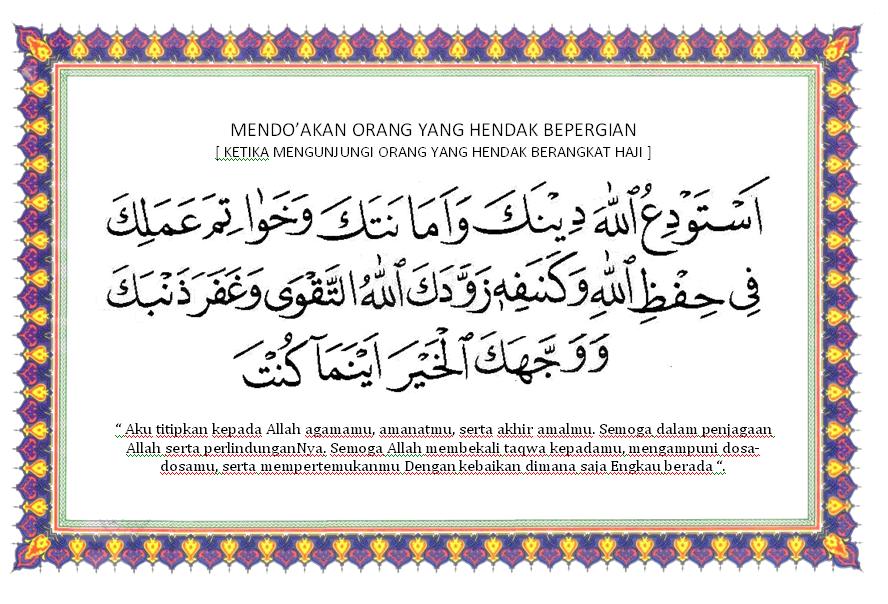 MENDO’AKAN ORANG YANG HENDAK BEPERGIAN
[ KETIKA MENGUNJUNGI ORANG YANG HENDAK BERANGKAT HAJI ]
اَسْتَوْدِعُ ٱللّٰهَ دِيْنَكَ وَاَمَا نَتَكَ وَخَوَا تِمَ عَمَلِكَ
فِى حِفْظِ ٱللّٰهِ وَكَنَفِهٖ زَوَّدَكَ ٱللّٰهُ التَّقْوَى وَغَفَرَ ذَنْبَكَ
وَوَجَّهَكَ ٱلْخَيْرَ اَيْنَمَآ كُنْتَ
“ Aku titipkan kepada Allah agamamu, amanatmu, serta akhir amalmu. Semoga dalam penjagaan
Allah serta perlindunganNya. Semoga Allah membekali taqwa kepadamu, mengampuni dosa-
dosamu, serta mempertemukanmu Dengan kebaikan dimana saja Engkau berada “.